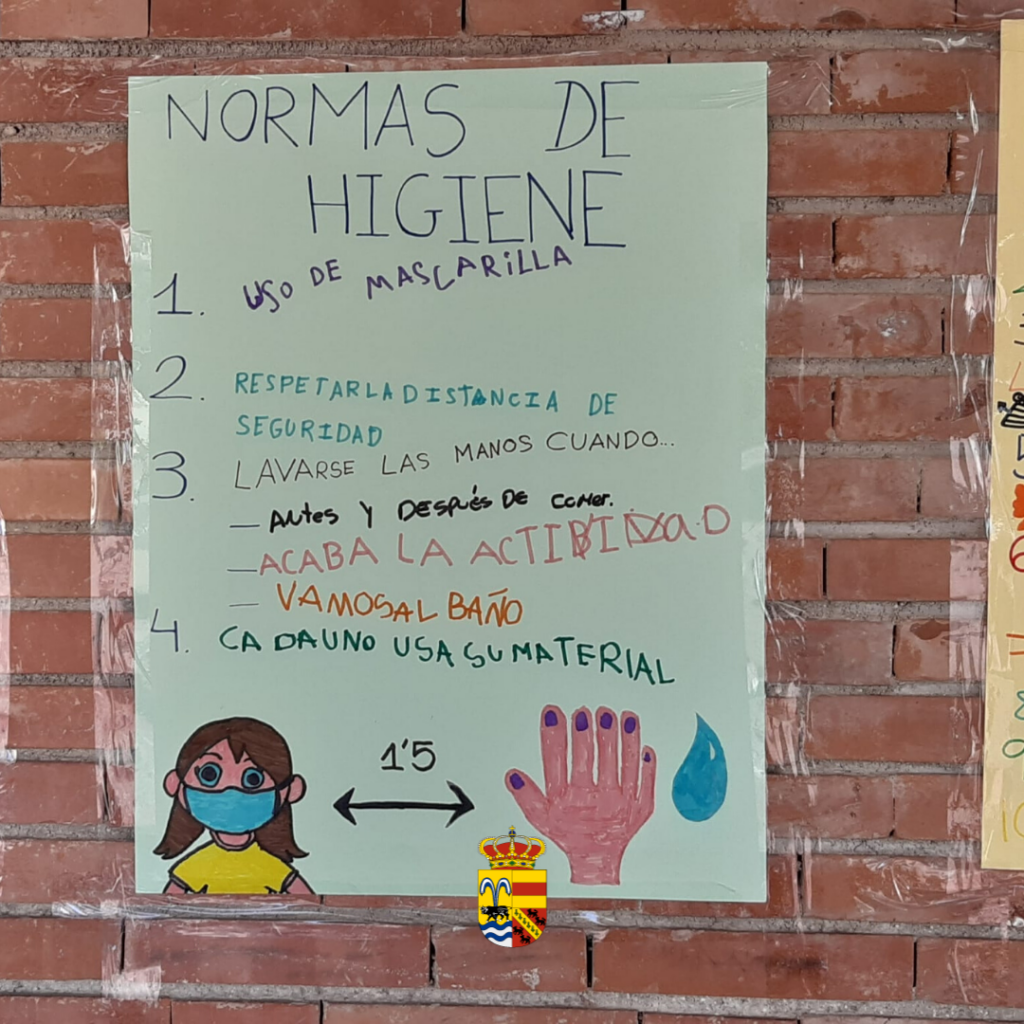 NORMAS DE
HIGIENE
1. USO DE MASCARiLLA
2. RESPETAR LA DISTANCIA DE
SEGURIDAD
3. LAVARSE LAS MANOS CUANDO...
— ANtes Y DESPUÉS DE COMER.
— ACABA LA ACTIBIDAD
— VAMOS AL BAÑO
4. CADA UNO USA SU MATERIAL
1'5